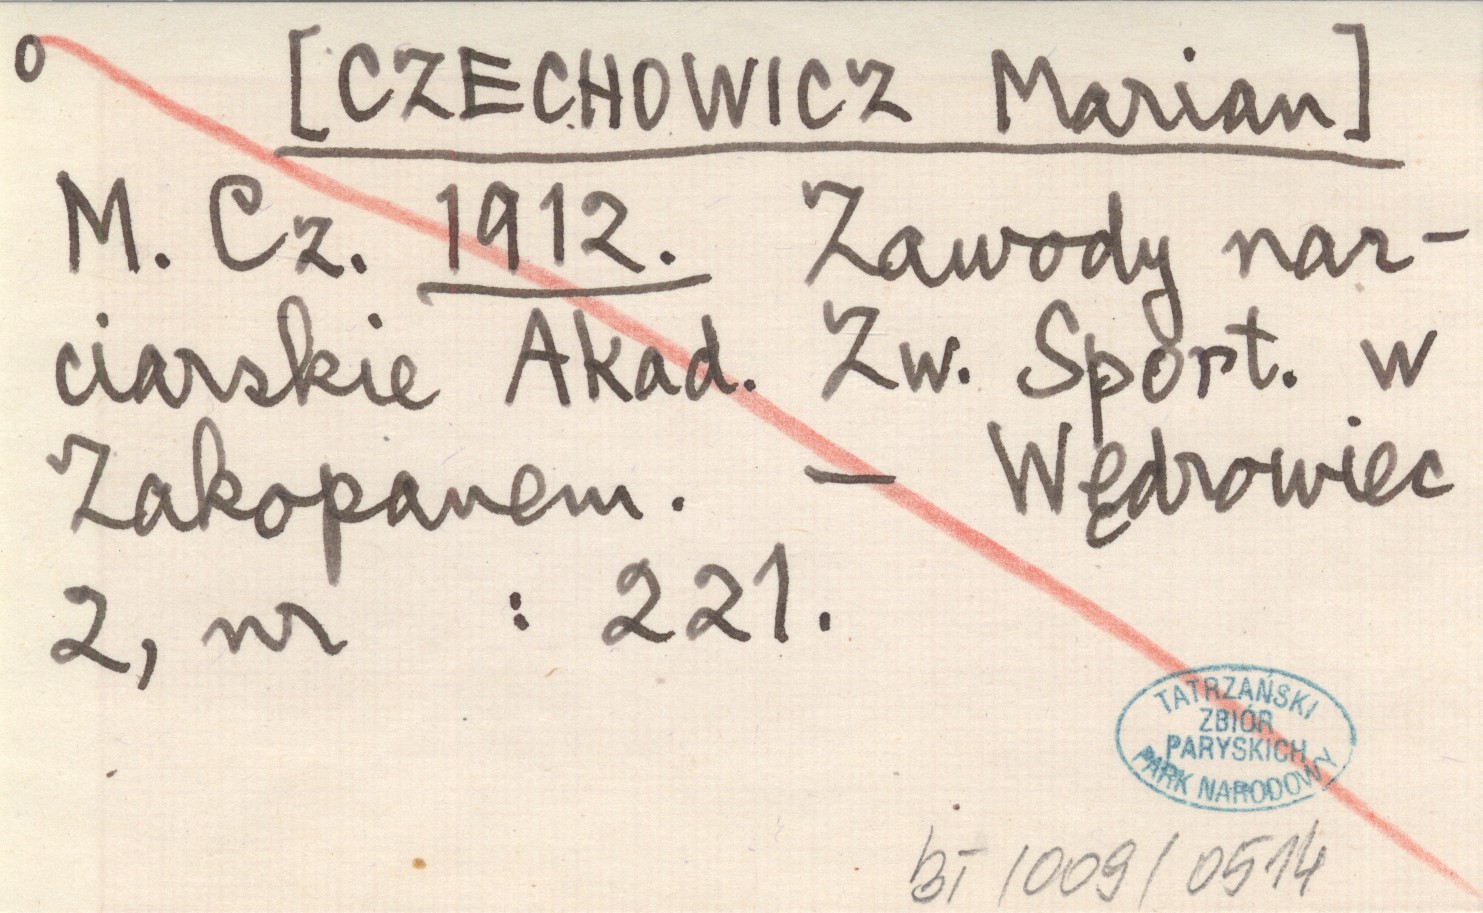 o [CZECHOWICZ Marian]
M. Cz. 1912. Zawody nar-
ciarskie Akad. Zw. Sport. w
Zakopanem. — Wędrowiec
2, nr : 221.
TATRZAŃSKI
ZBIÓR
PARYSKICH
PARK NARODOWY
bT/009/0514